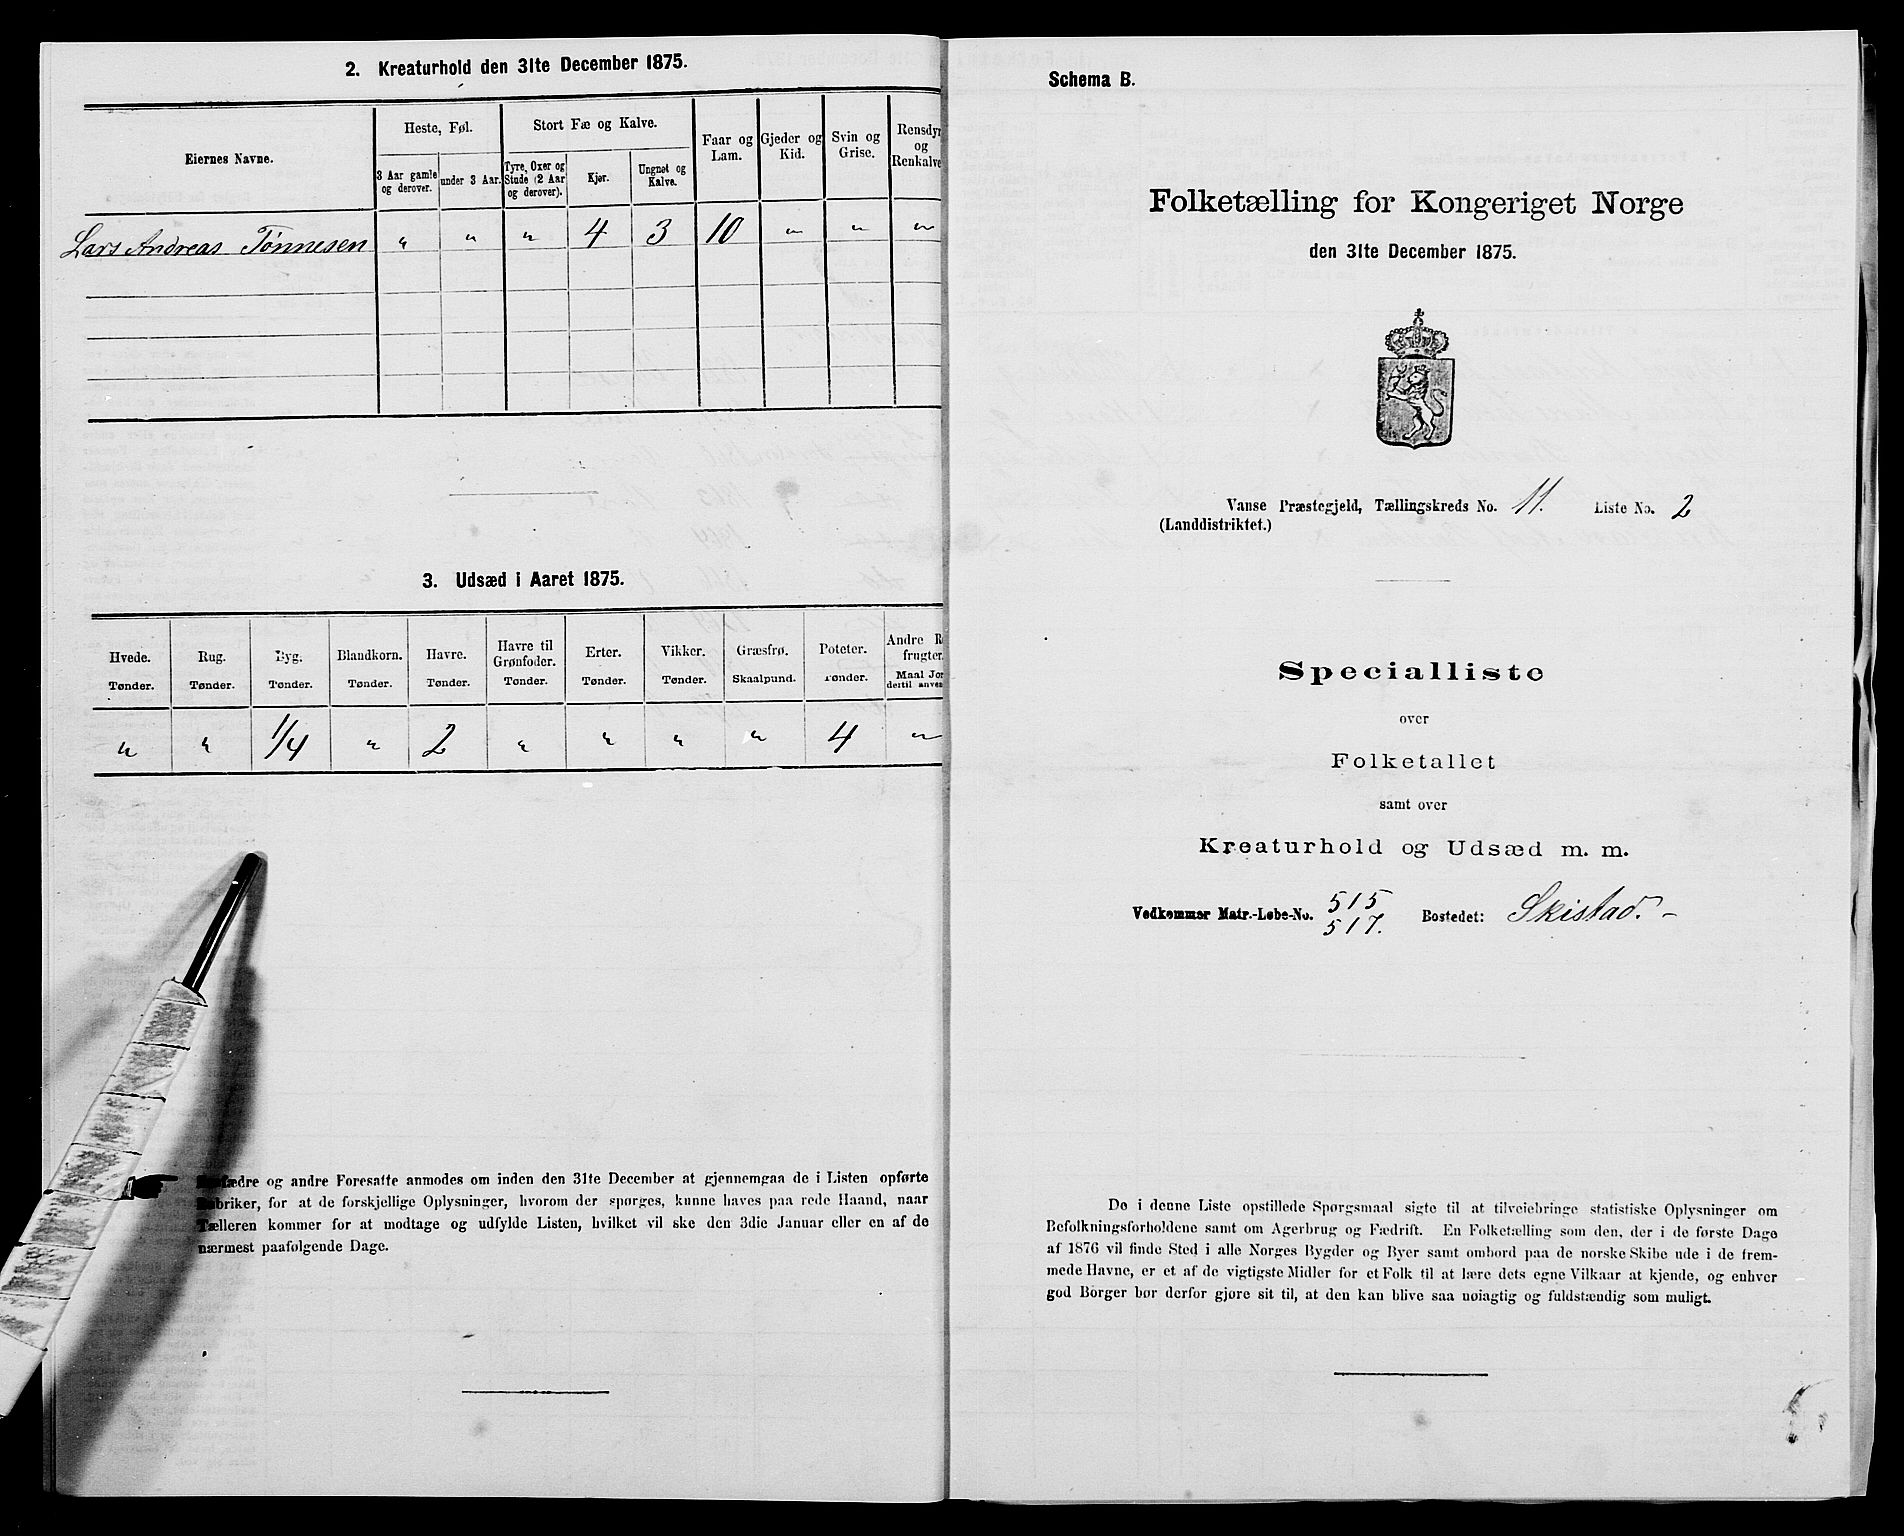 2. Kreaturhold den 31te December 1875.
Eiernes Navne.
Heste, Føl.
Stort Fæ og Kalve.
Faar og Lam.
Gjeder og Kid.
Svin og Grise.
Rensdyr og Renkalve
3 Aar gamle og derover.
under 3 Aar.
Tyre, Oxer og Stude (2 Aar og derover).
Kjør.
Ungnøt og Kalve.
Lars Andreas Tønnesen " " " 4 3 10 " " "
3. Udsæd i Aaret 1875.
Hvede. Rug. Byg. Blandkorn. Havre. Havre til Grønfoder. Erter. Vikker. Græsfrø. Poteter. Andre R frugter.
Tønder. Tønder. Tønder. Tønder. Tønder. Tønder. Tønder. Tønder. Skaalpund. Tønder. Maal Jor dertil anven
" " 1/4 " 2 " " " " 4 "
og andre Foresatte anmodes om inden den 31te December at gjennemgaa de i Listen opførte
Rubriker, for at de forskjellige Oplysninger, hvorom der spørges, kunne haves paa rede Haand, naar
Tælleren kommer for at modtage og udfylde Listen, hvilket vil ske den 3die Januar eller en af de
nærmest paafølgende Dage.
Schema B.
Folketælling for Kongeriget Norge
den 31te December 1875.
Vanse Præstegjeld, Tællingskreds No. 11. Liste No. 2
(Landdistriktet.)
Specialliste
over
Folketallet
samt over
Kreaturhold og Udsæd m. m.
Vedkommer Matr.-Løbe-No. 515 517. Bosted​et: Skistad. -
De i denne Liste opstillede Spørgsmaal sigte til at tilveiebringe statistiske Oplysninger om
Befolkningsforholdene samt om Agerbrug og Fædrift. En Folketælling som den, der i de første Dage
af 1876 vil finde Sted i alle Norges Bygder og Byer samt ombord paa de norske Skibe ude i de frem-
mede Havne, er et af de vigtigste Midler for et Folk til at lære dets egne Vilkaar at kjende, og enhver
god Borger bør derfor gjøre sit til, at den kan blive saa nøiagtig og fuldstændig som muligt.